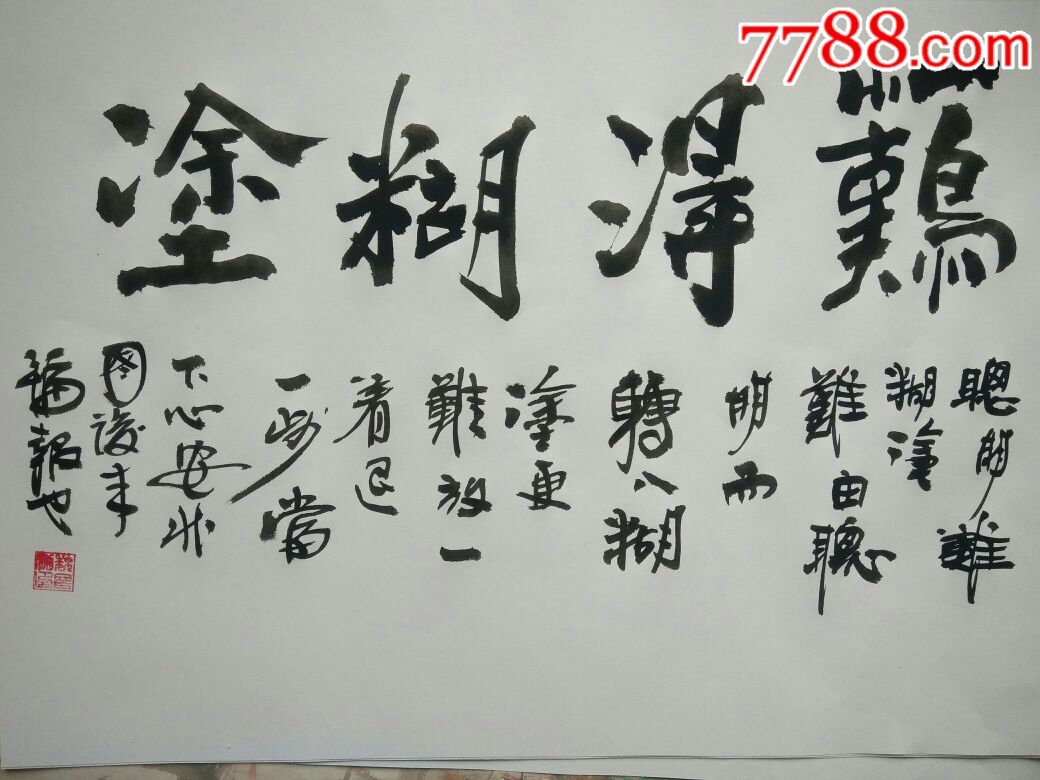 7788.com
難得糊塗
聰明難
糊塗
難由聰
明而
轉入糊
塗更
難放一
着退
一步當
下心安非
图後来
福報也